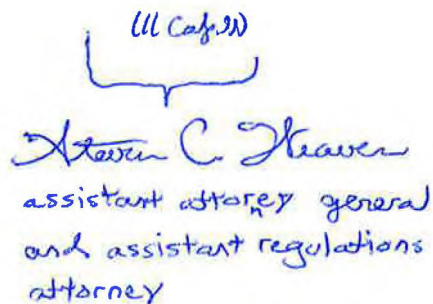 Steven C. Weaver
assistant attorney general
and assistant regulations
attorney